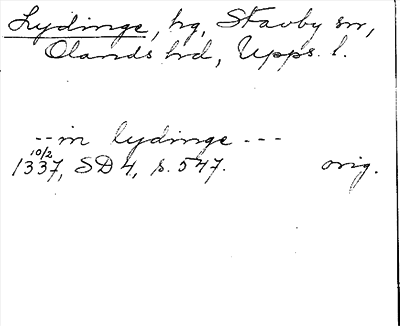 Lydinge, hg, Stavby sn,
Olands hrd, Upps. l.
--in lydinge ---
10/2
1337, SD 4, s. 547. orig.